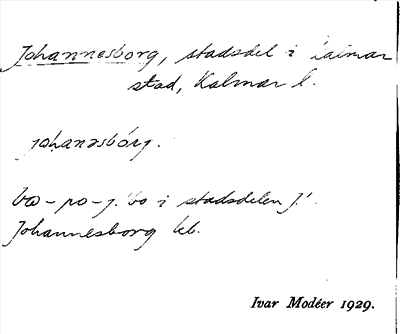 Johannesborg, stadsdel i Kalmar
stad, Kalmar l.
johanəsbórj.
bo - po - j. 'bo i stadsdelen J.'
Johannesborg kb.
Ivar Modéer 1929.